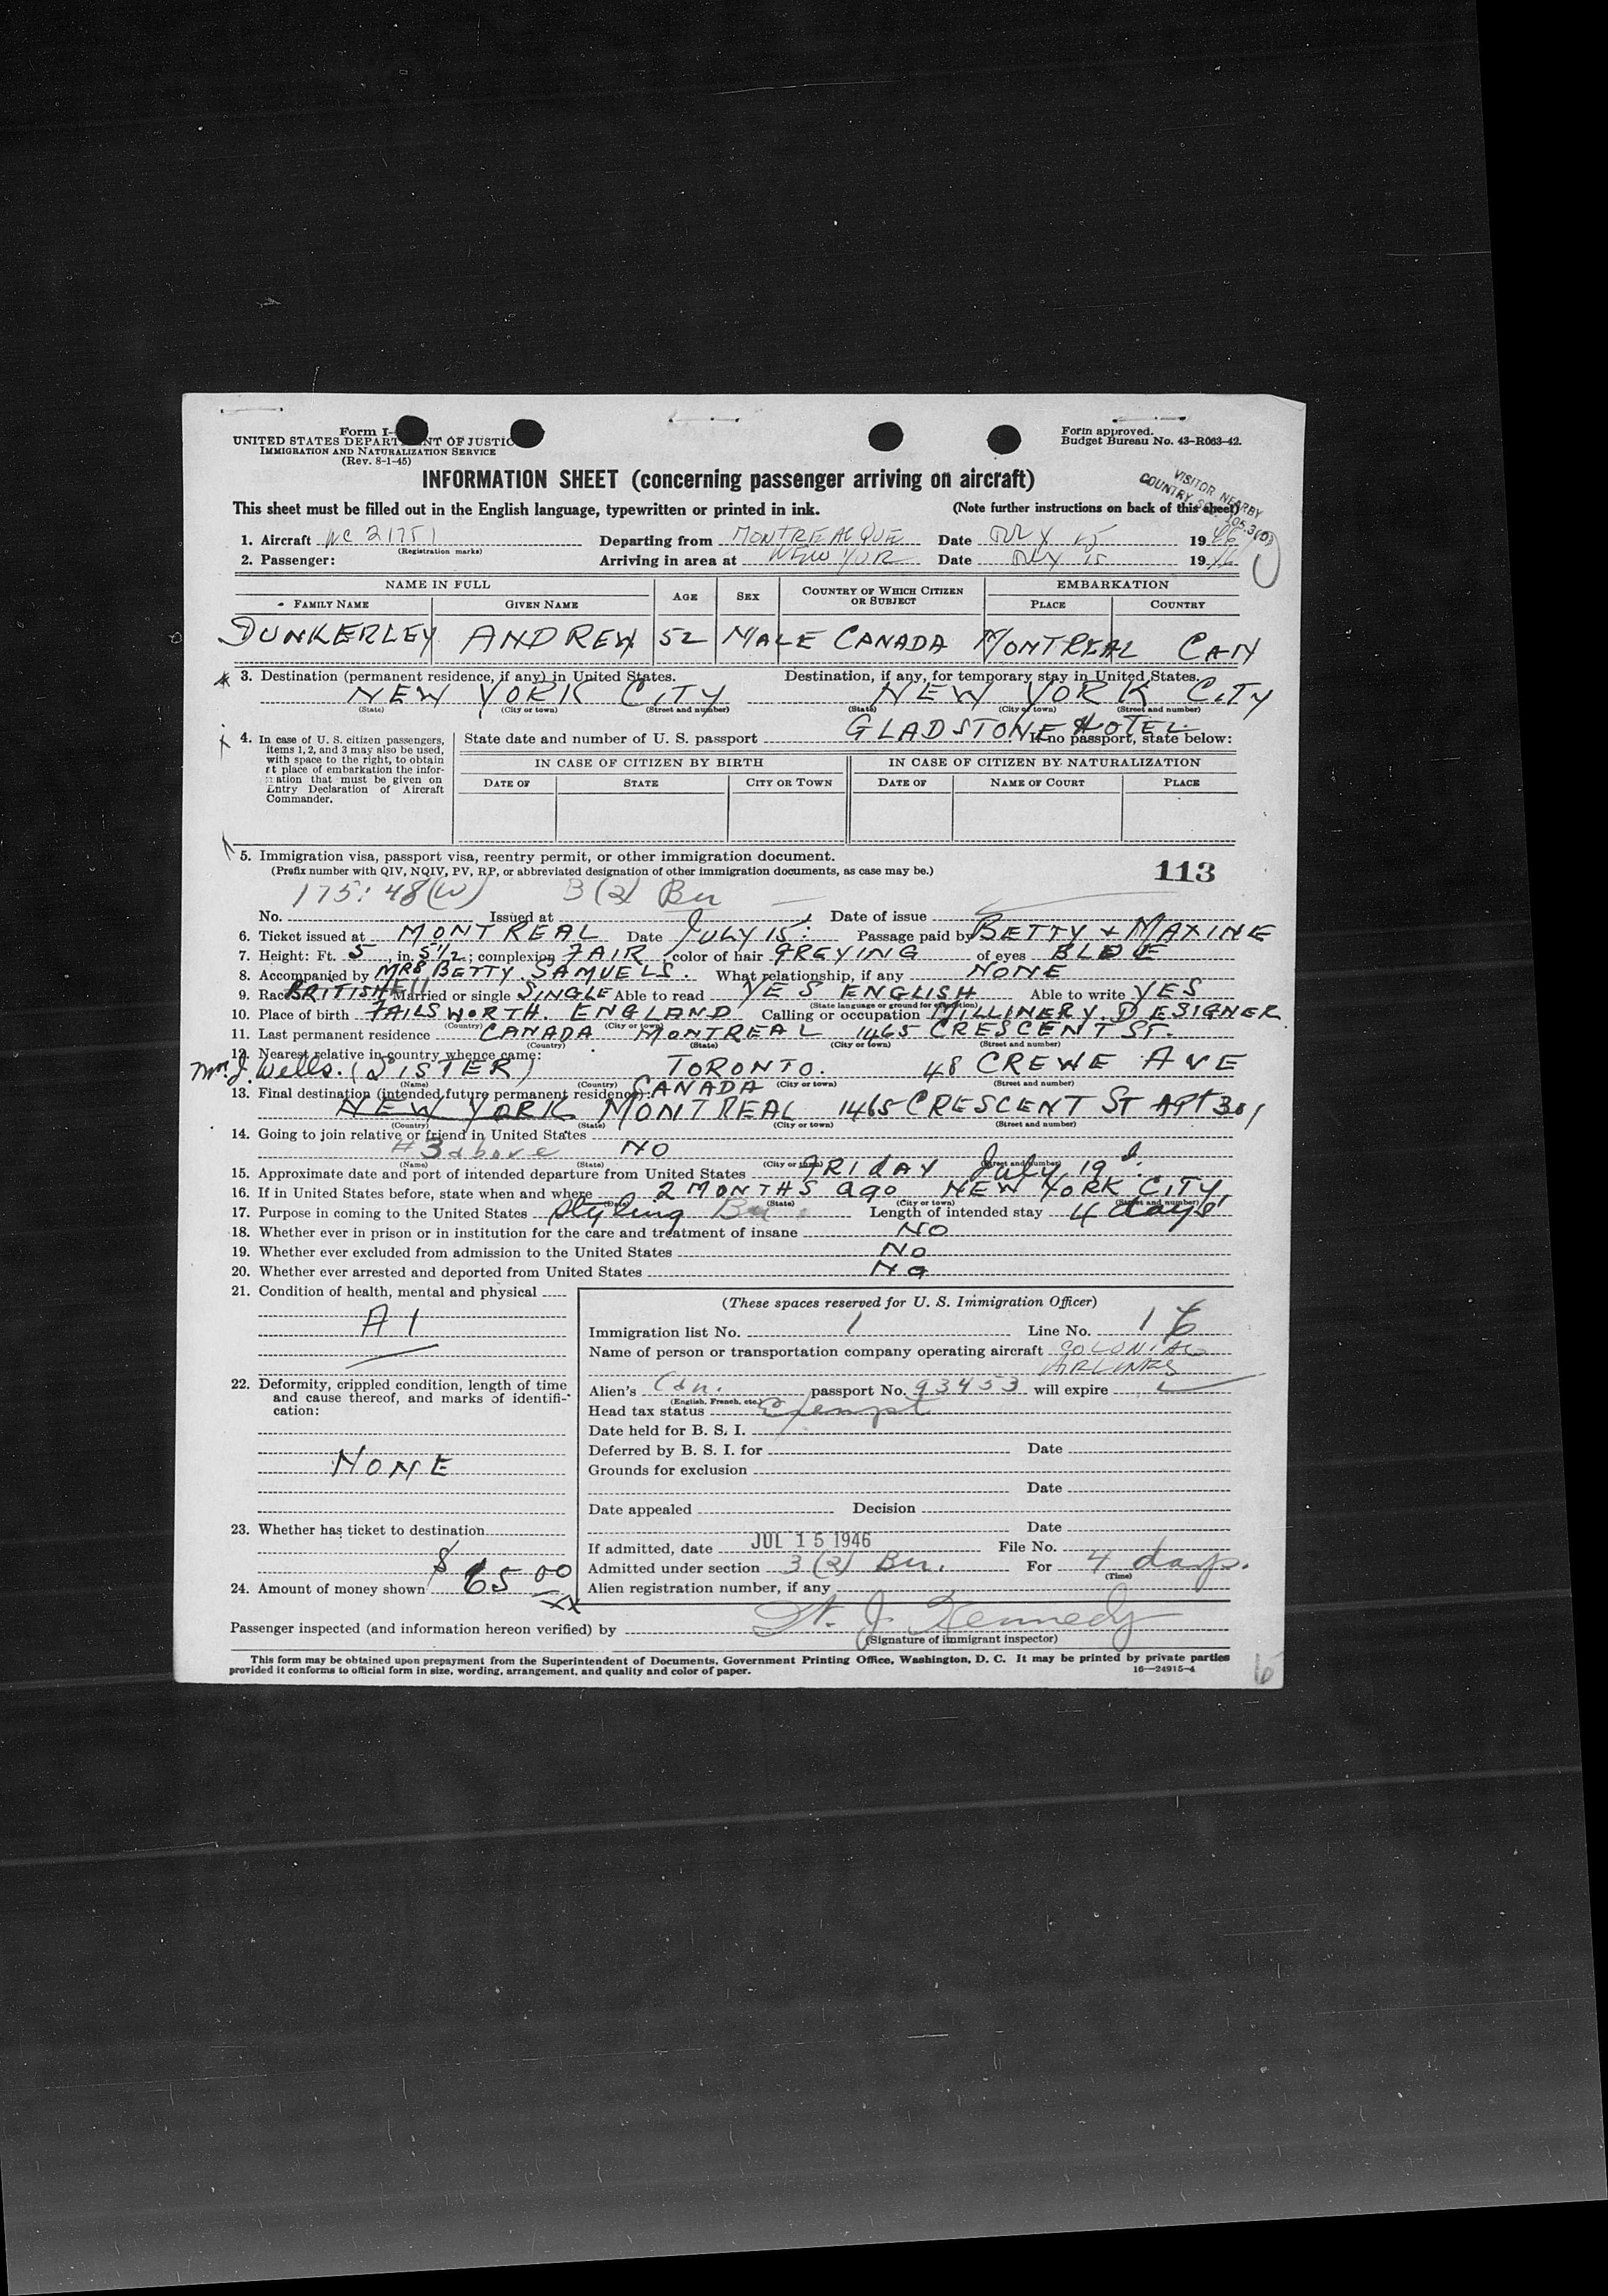 Form I-
UNITED STATES DEPARTMENT OF JUSTIC
IMMIGRATION AND NATURALIZATION SERVICE
(Rev. 8-1-45)
Form approved.
Budget Bureau No. 43-R063-42.
INFORMATION SHEET (concerning passenger arriving on aircraft)
VISITOR NEARBY
COUNTRY
This sheet must be filled out in the English language, typewritten or printed in ink. (Note further instructions on back of this sheet)
1. Aircraft NC 21751 Departing from MONTREAL QUE Date JULY 15 1946
(Registration marks)
2. Passenger: Arriving in area at NEW YOR Date JULY 15 1946
NAME IN FULL AGE SEX COUNTRY OF WHICH CITIZEN OR SUBJECT EMBARKATION
FAMILY NAME GIVEN NAME PLACE COUNTRY
DUNKERLEY ANDREW 52 MALE CANADA MONTREAL CAN
3. Destination (permanent residence, if any) in United States. Destination, if any, for temporary stay in United States.
NEW YORK CITY NEW YORK CITY
(State) (City or town) (Street and number) (State) (City or town) (Street and number)
GLADSTONE HOTEL
4. In case of U. S. citizen passengers, items 1, 2, and 3 may also be used, with space to the right, to obtain at place of embarkation the information that must be given on Entry Declaration of Aircraft Commander.
State date and number of U. S. passport If no passport, state below:
IN CASE OF CITIZEN BY BIRTH IN CASE OF CITIZEN BY NATURALIZATION
DATE OF STATE CITY OR TOWN DATE OF NAME OF COURT PLACE
5. Immigration visa, passport visa, reentry permit, or other immigration document.
(Prefix number with QIV, NQIV, PV, RP, or abbreviated designation of other immigration documents, as case may be.) 113
175:48(W) 3(2) Bu
No. Issued at Date of issue
6. Ticket issued at MONTREAL Date JULY 15: Passage paid by BETTY + MAXINE
7. Height: Ft. 5, in. 5 1/2; complexion FAIR color of hair GREYING of eyes BLUE
8. Accompanied by MRS BETTY SAMUELS. What relationship, if any NONE
9. Race BRITISH Married or single SINGLE Able to read YES ENGLISH Able to write YES
(State language or ground for exemption)
10. Place of birth FAILSWORTH. ENGLAND Calling or occupation MILLINERY. DESIGNER
(Country) (City or town)
11. Last permanent residence CANADA MONTREAL 1465 CRESCENT ST.
(Country) (State) (City or town) (Street and number)
12. Nearest relative in country whence came:
Mrs. J. Wells. (SISTER) TORONTO. 48 CREWE AVE
(Name) (Country) (City or town) (Street and number)
CANADA
13. Final destination (intended future permanent residence):
NEW YORK MONTREAL 1465 CRESCENT ST APT 301
(Country) (State) (City or town) (Street and number)
14. Going to join relative or friend in United States
#3 above NO
(Name) (State) (City or town) (Street and number)
15. Approximate date and port of intended departure from United States FRIDAY July 19
16. If in United States before, state when and where 2 MONTHS ago NEW YORK CITY,
(Date) (State) (City or town) (Street and number)
17. Purpose in coming to the United States Styling Bu Length of intended stay 4 days
18. Whether ever in prison or in institution for the care and treatment of insane NO
19. Whether ever excluded from admission to the United States NO
20. Whether ever arrested and deported from United States NO
21. Condition of health, mental and physical
A 1
22. Deformity, crippled condition, length of time and cause thereof, and marks of identification:
NONE
23. Whether has ticket to destination
24. Amount of money shown $65.00
(These spaces reserved for U. S. Immigration Officer)
Immigration list No. 1 Line No. 16
Name of person or transportation company operating aircraft COLONIAL
AIRLINES
Alien's Cdn. passport No. 93453 will expire
(English, French, etc.)
Head tax status Exempt
Date held for B. S. I.
Deferred by B. S. I. for Date
Grounds for exclusion
Date
Date appealed Decision
Date
If admitted, date JUL 15 1946 File No.
Admitted under section 3(2) Bu. For 4 days.
(Time)
Alien registration number, if any
Passenger inspected (and information hereon verified) by J. Kennedy
(Signature of immigrant inspector)
This form may be obtained upon prepayment from the Superintendent of Documents, Government Printing Office, Washington, D. C. It may be printed by private parties
provided it conforms to official form in size, wording, arrangement, and quality and color of paper. 16—24915-4